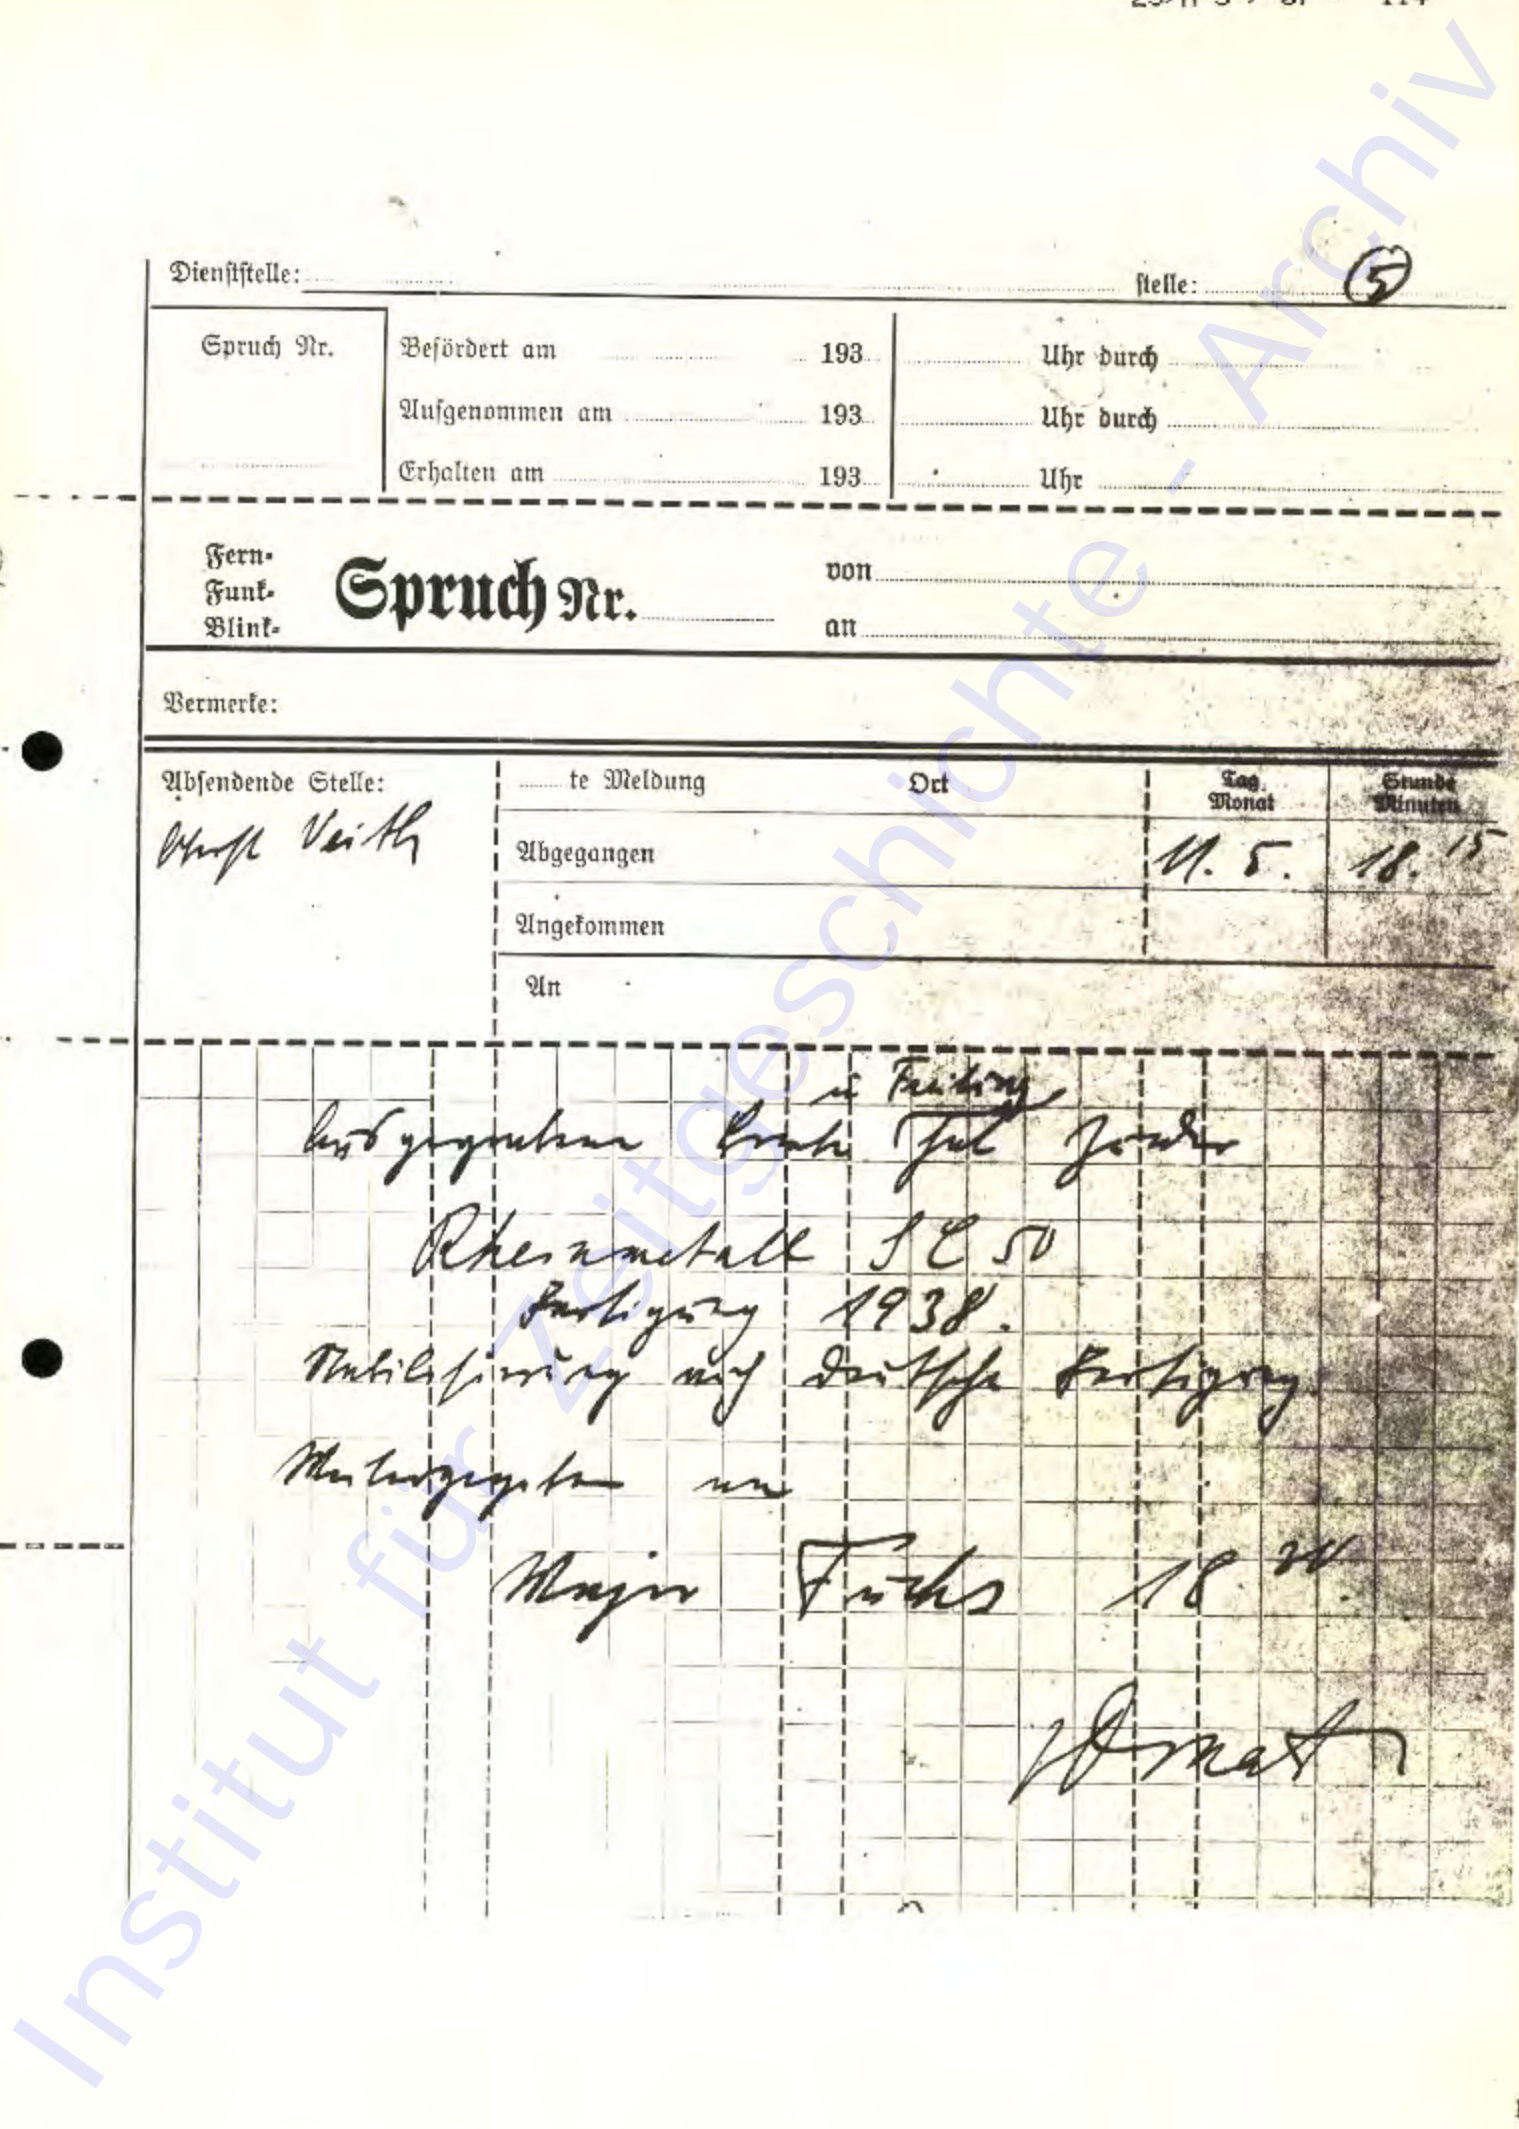 Dienststelle: stelle: 5
Spruch Nr.
Befördert am 193 Uhr durch
Aufgenommen am 193 Uhr durch
Erhalten am 193 Uhr
Fern-
Funk-
Blink-
Spruch Nr.
von
an
Vermerke:
Absendende Stelle:
Oberst Veith
te Meldung Ort Tag Monat Stunde Minuten
Abgegangen 11. 5. 18.15
Angekommen
An
in Freiburg
Ausgegrabene Bombe hat Zünder
Rheinmetall S C 50
Fertigung 1938.
Stabilisierung auch deutsche Fertigung.
Weitergegeben an
Major Fuchs 18
Institut für Zeitgeschichte - Archiv